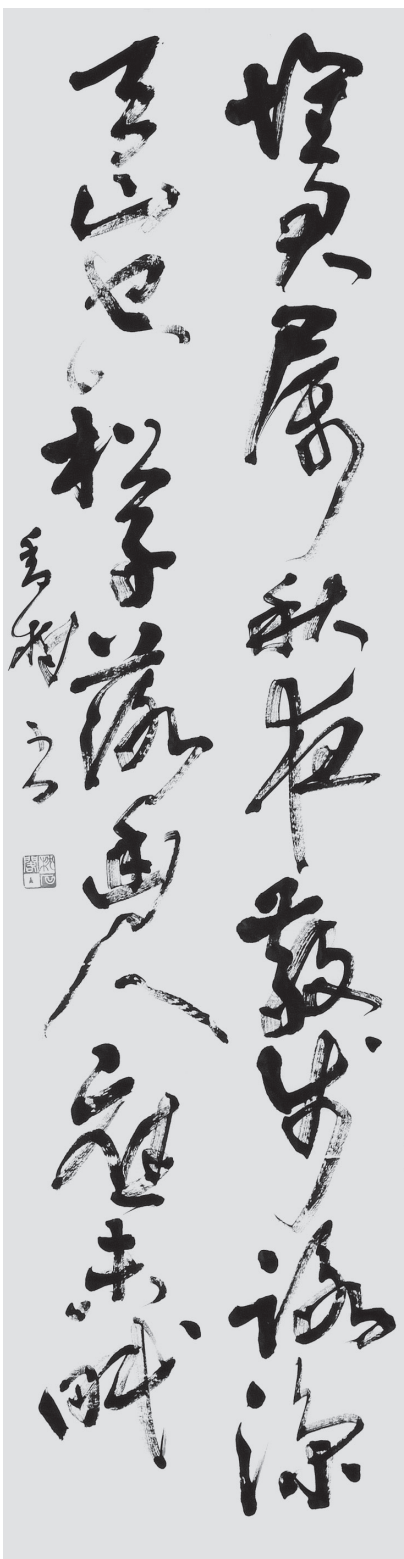 懷君屬秋夜散步詠涼
天山空松子落幽人應未眠